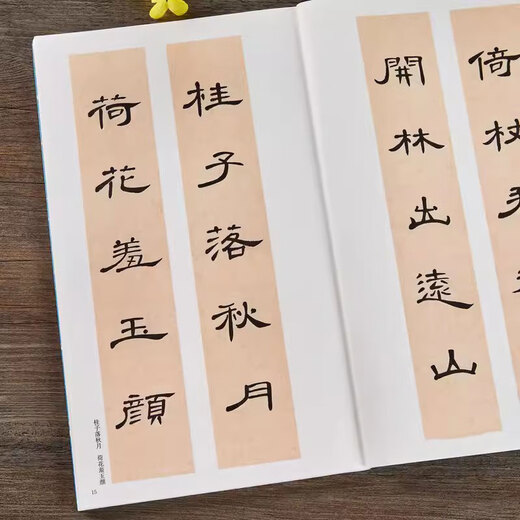 桂子落秋月
荷花羞玉顔
桂子落秋月 荷花羞玉顔
15
倚杖
開林出遠山